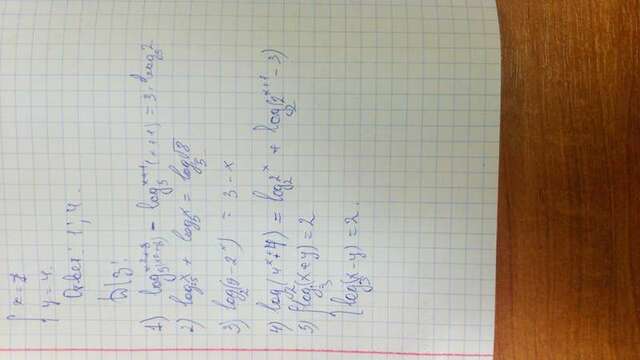 x = 1
y = 4.
Ответ: 1; 4.
D/З:
1) log₅(x²+8) - log₅(x+1) = 3 · log₅2
2) log₂₅x + log₅x = log₅√8
3) log₂(9 - 2ˣ) = 3 - x
4) log₂(4ˣ + 4) = log₂2ˣ + log₂(2ˣ⁺¹ - 3)
5) log₃(x + y) = 2
log₃(x - y) = 2.